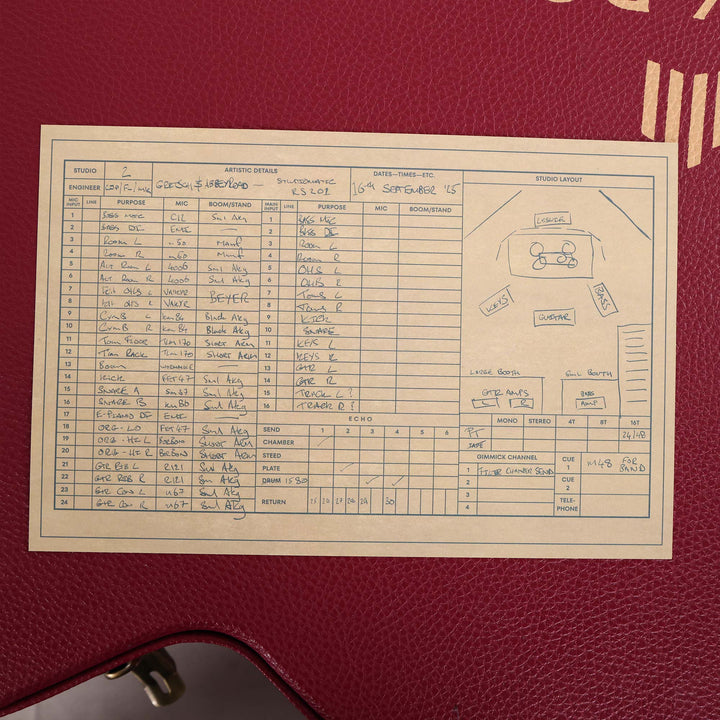 STUDIO 2 ARTISTIC DETAILS DATES—TIMES—ETC. STUDIO LAYOUT
ENGINEER GRETSCH & ABBEY ROAD — RS201 16th SEPTEMBER '25
MIC INPUT LINE PURPOSE MIC BOOM/STAND MAIN INPUT LINE PURPOSE MIC BOOM/STAND
1 BASS MIC C12 Sml Akg 1 BASS MIC
2 BASS DI EMI — 2 BASS DI
3 ROOM L M50 3 ROOM L
4 ROOM R M50 4 ROOM R
5 ALT ROOM L 4006 Sml Akg 5 OHS L
6 ALT ROOM R 4006 Sml Akg 6 OHS R
7 KIT OHS L BEYER 7 TOMS L
8 KIT OHS R 8 TOMS R
9 L km84 Black Akg 9 KICK
10 R km84 Black Akg 10 SNARE
11 TOM FLOOR TLM170 SHORT ARM 11 KEYS L
12 TOM RACK TLM170 SHORT ARM 12 KEYS R
13 — 13 GTR L
14 KICK FET47 Sml Akg 14 GTR R
15 SNARE A SM57 Sml Akg 15 TRACK L?
16 SNARE B KM86 Sml Akg 16 TRACK R?
17 E-PIANO DI EMI — ECHO
18 ORG-LO FET47 Sml Akg SEND 1 2 3 4 5 6
19 ORG-HI L SHORT ARM CHAMBER
20 ORG-HI R SHORT ARM STEED
21 GTR RIB L R121 Sml Akg PLATE
22 GTR RIB R R121 Sml Akg DRUM 1580
23 GTR CON L U67 Sml Akg RETURN
24 GTR CON R U67 Sml Akg
LESLIE
KEYS
BASS
GUITAR
LARGE BOOTH
GTR AMPS
L R
SML BOOTH
BASS
AMP
MONO STEREO 4T 8T 16T
PT 24/48
TAPE
GIMMICK CHANNEL CUE 1 M48 FOR BAND
1 FILTER CHAMBER SEND
2 CUE 2
3
4 TELE-PHONE